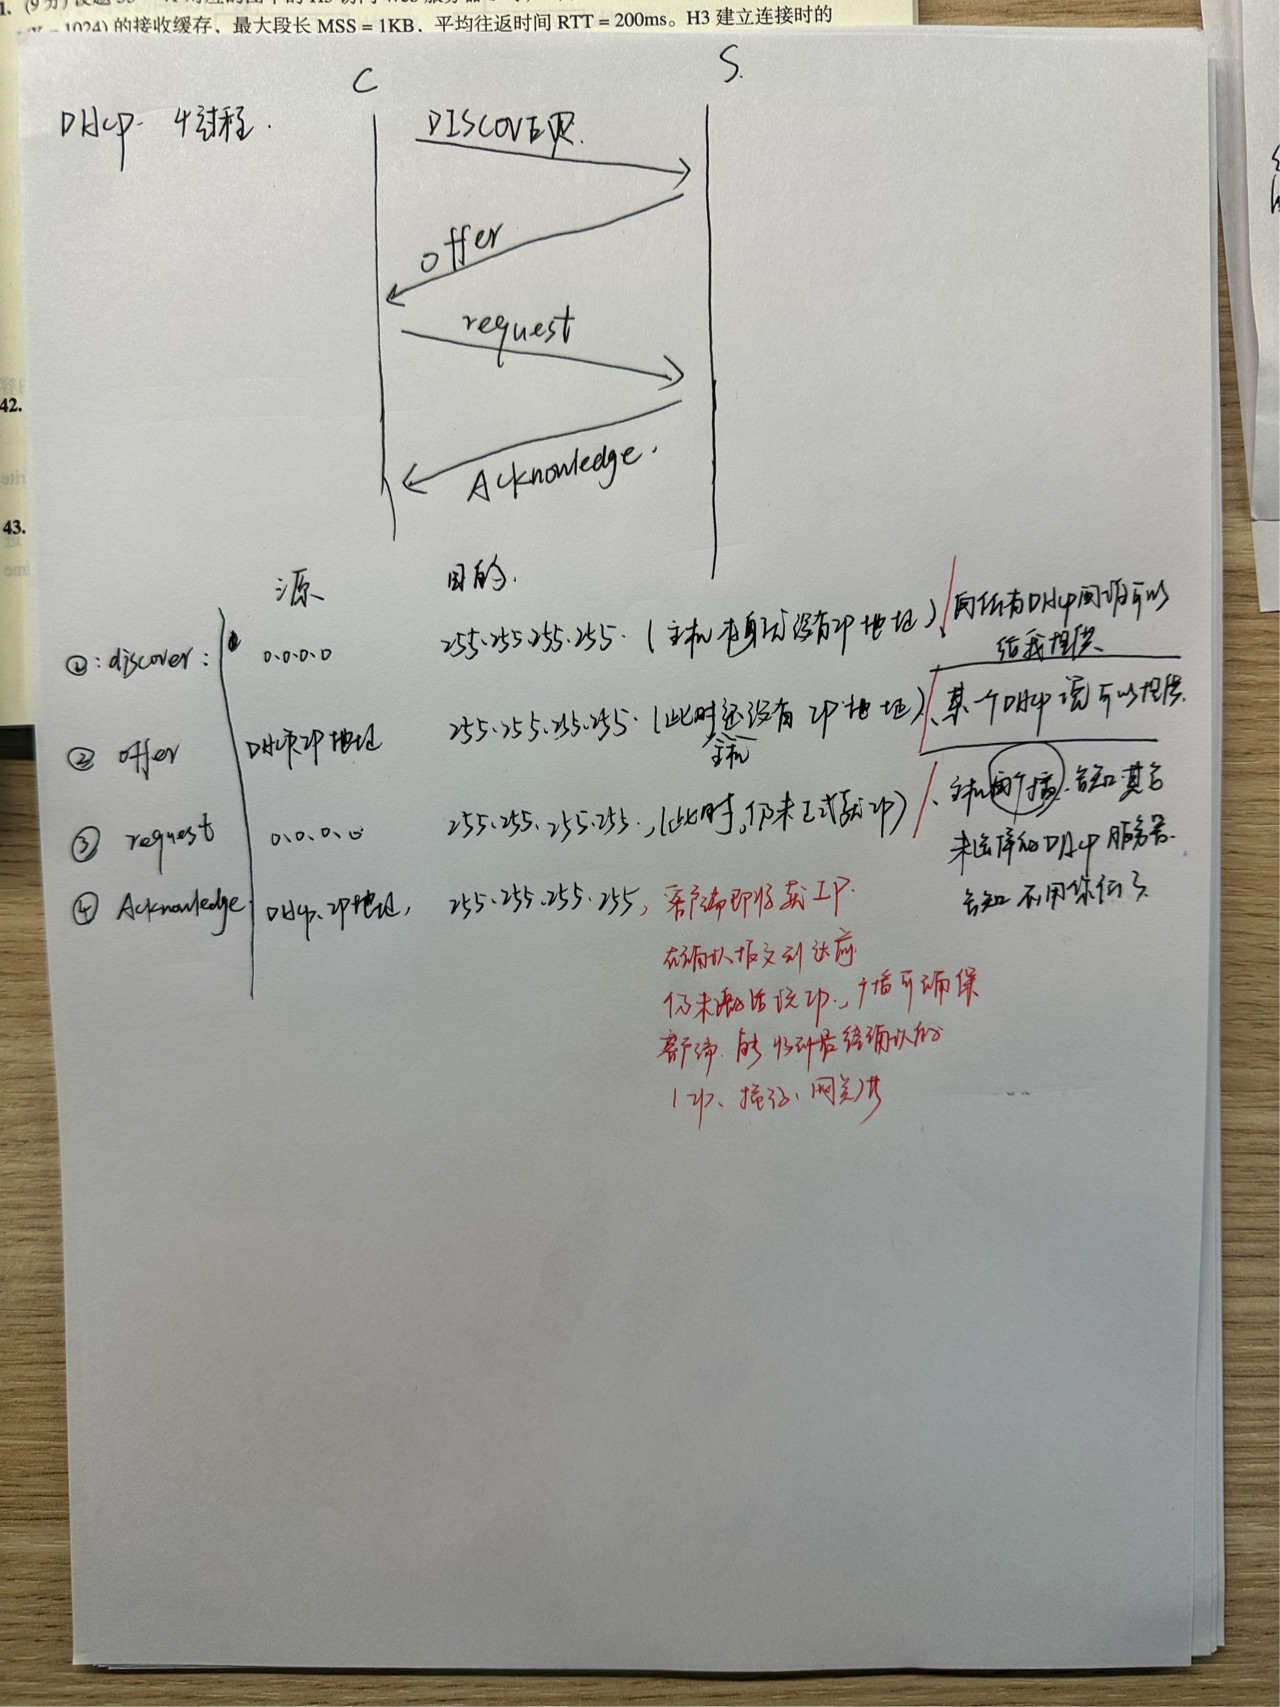 1. (9分) 设题33
= 1024) 的接收缓存，最大段长 MSS = 1KB，平均往返时间 RTT = 200ms。H3 建立连接时的
C
S.
DHCP. 4过程.
DISCOVER.
offer
request
Acknowledge.
42.
43.
源
目的.
①: discover: 0.0.0.0 255.255.255.255. (主机本身就没有IP地址) 向所有DHCP 可以
给我提供.
② offer DHCP IP地址 255.255.255.255. (此时还没有IP地址) 某一个DHCP 说可以提供.
主机
③ request 0.0.0.0 255.255.255.255., (此时, 仍未正式获IP) 主机 广播. 告知其它
未选择的DHCP服务器.
④ Acknowledge. DHCP、IP地址, 255.255.255.255, 客户端即将获IP.
告知不用你们了.
在确认报文到达前
仍未激活该IP., 广播可确保
客户端. 能收到最终确认的
IP、掩码、网关